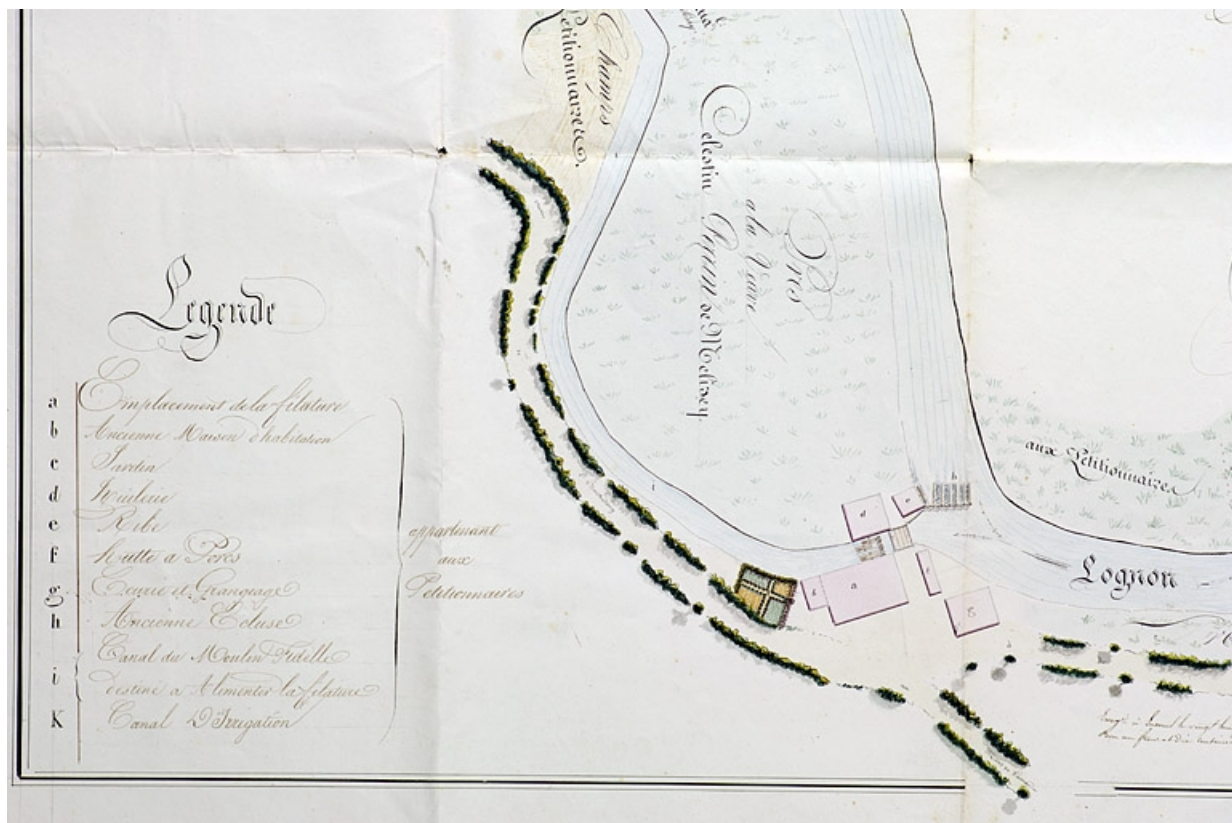 Champs
Petitionnaires.
Prés
a la Veuve
Celestin de Melisey.
aux Petitionnaires
Lognon
Legende
a Emplacement de la filature
b Ancienne Maison d'habitation
c Jardin
d Huilerie
e Ribe
f hutte a Porcs
g Ecurie et Grangeage
h Ancienne Ecluse
i Canal du Moulin
destiné a Alimenter la filature
K Canal D'Irrigation
appartenant
aux
Petitionnaires